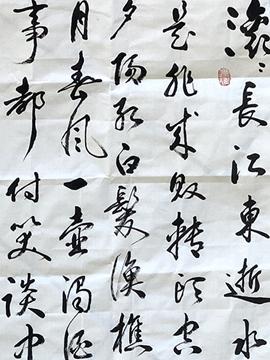 滚〻長江東逝水
是非成敗轉頭空
夕陽紅白髮漁樵
月春風一壺濁酒
事都付笑談中